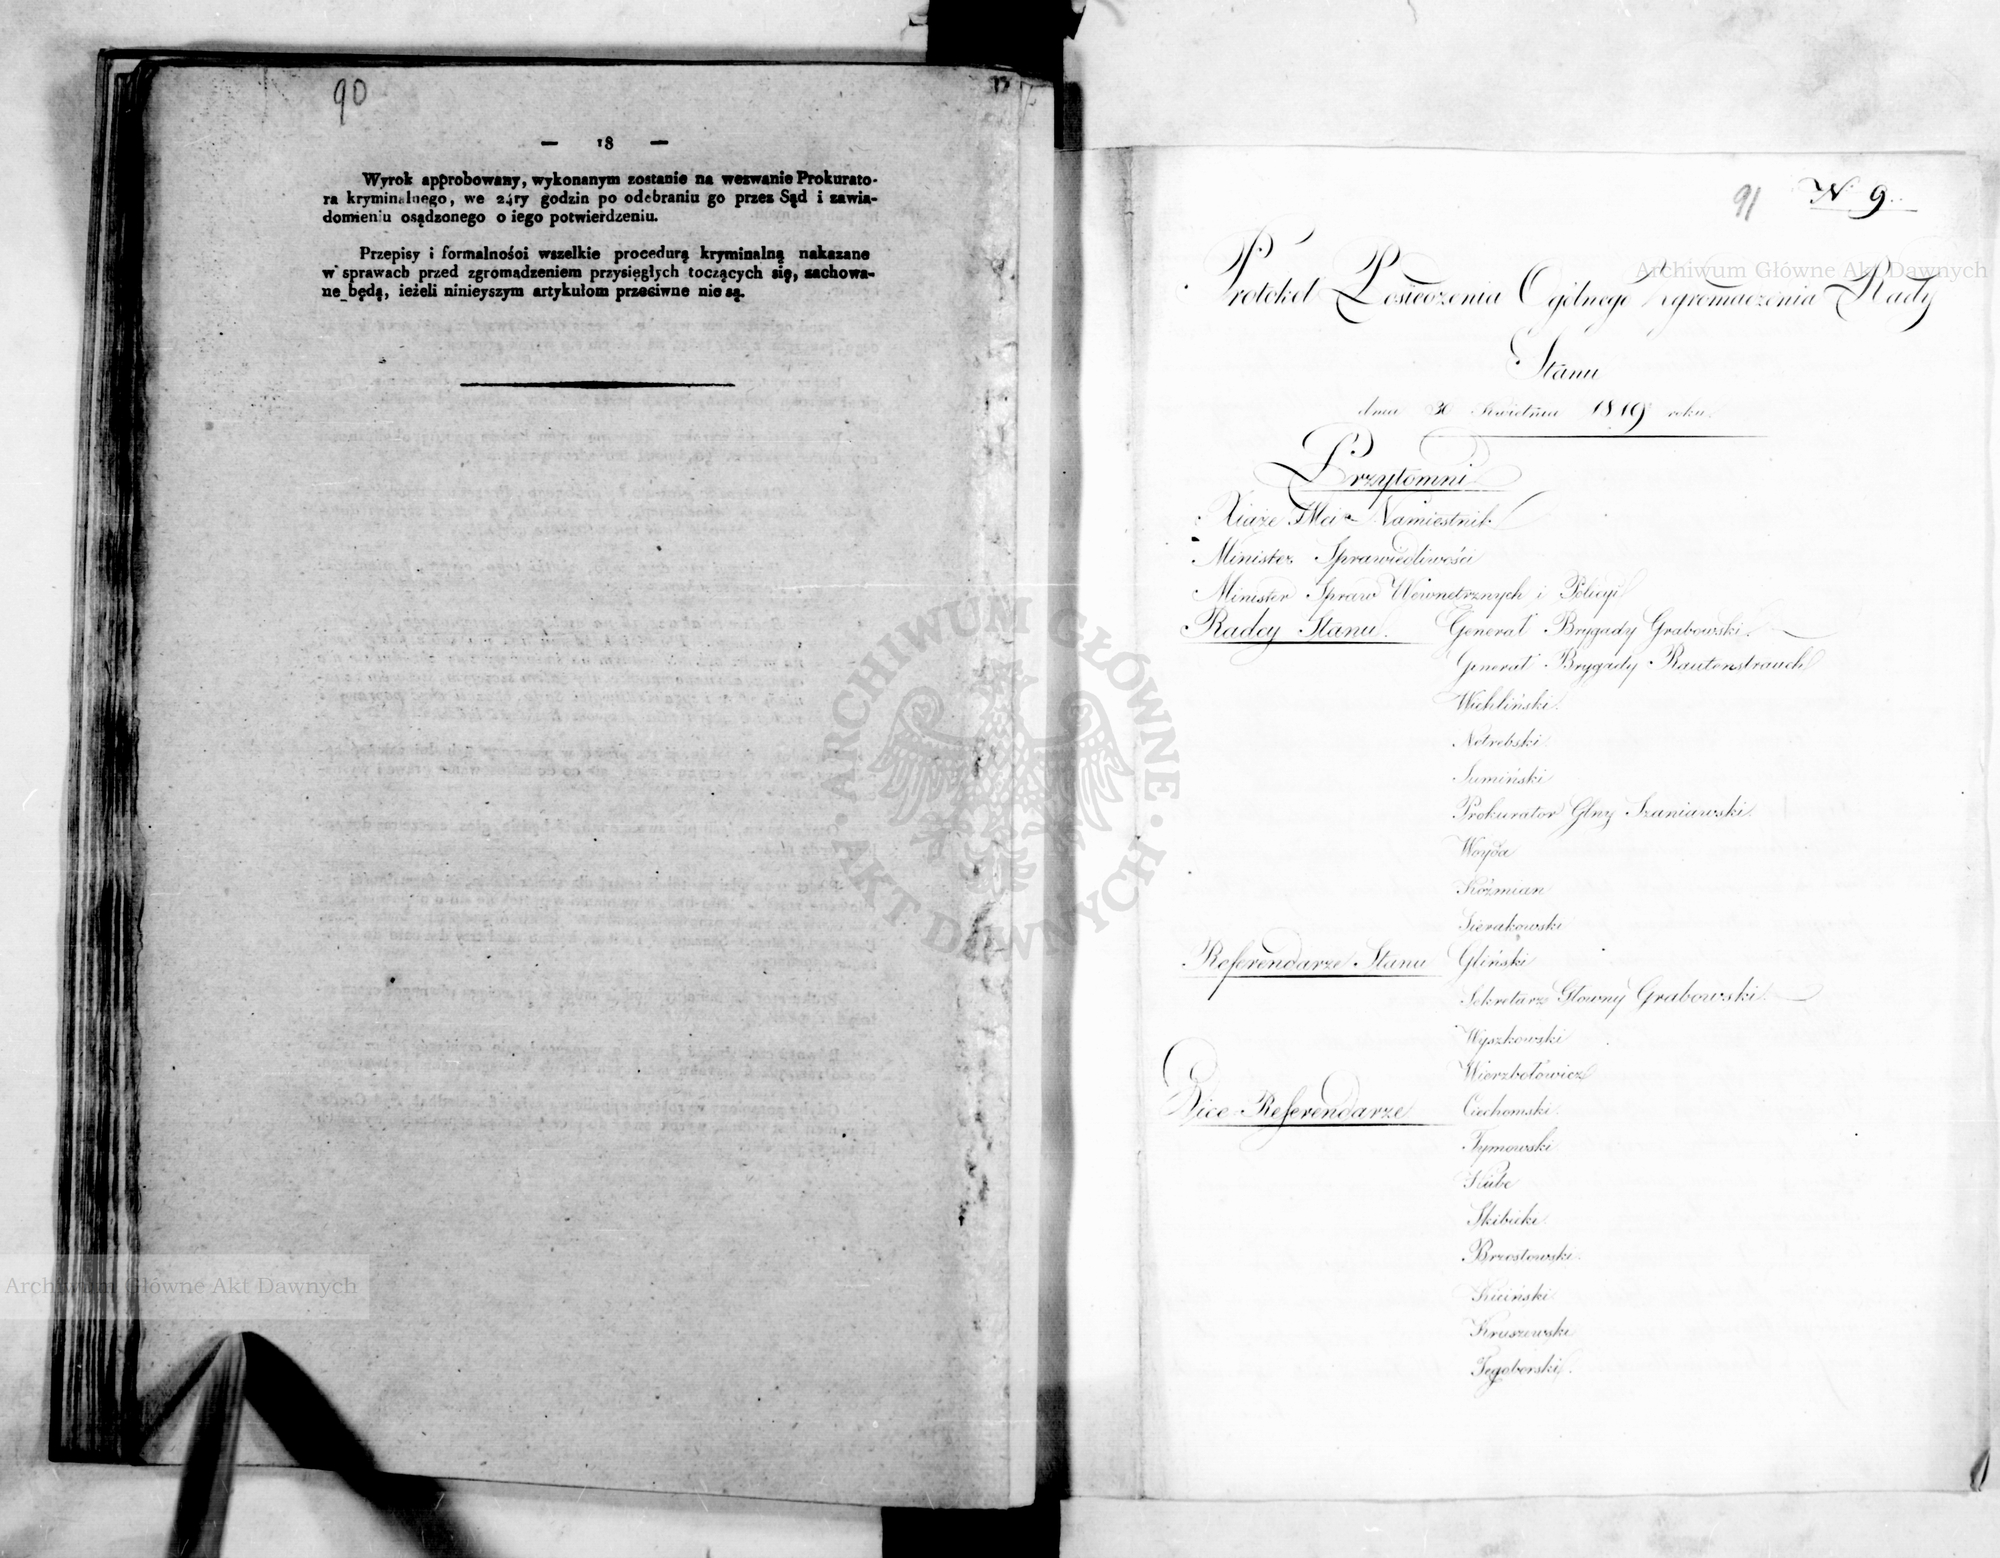 90
— 18 —
Wyrok approbowany, wykonanym zostanie na wezwanie Prokurato-
ra kryminalnego, we 24ry godzin po odebraniu go przez Sąd i zawia-
domieniu osądzonego o iego potwierdzeniu.
Przepisy i formalności wszelkie procedurą kryminalną nakazane
w sprawach przed zgromadzeniem przysięgłych toczących się, zachowa-
ne będą, ieżeli ninieyszym artykułom przeciwne nie są.
91 N. 9.
Protokół Posiedzenia Ogólnego Zgromadzenia Rady
Stanu
dnia 30 Kwietnia 1819 roku.
Przytomni
Xiąże JMci Namiestnik
Minister Sprawiedliwości
Minister Spraw Wewnetrznych i Policyi
Radcy Stanu. Generał Brygady Grabowski.
Generał Brygady Rautenstrauch
Wichliński.
Netrebski.
Sumiński
Prokurator Glny Szaniawski.
Woyda
Koźmian
Sierakowski
Referendarze Stanu Gliński
Sekretarz Głowny Grabowski.
Wyszkowski
Wierzbołowicz
Vice-Referendarze Ciechomski.
Tymowski
Kube
Skibicki.
Brzostowski.
Kiciński
Kruszewski
Tęgoborski.
Archiwum Główne Akt Dawnych
Archiwum Główne Akt Dawnych
ARCHIWUM GŁÓWNE · AKT DAWNYCH ·